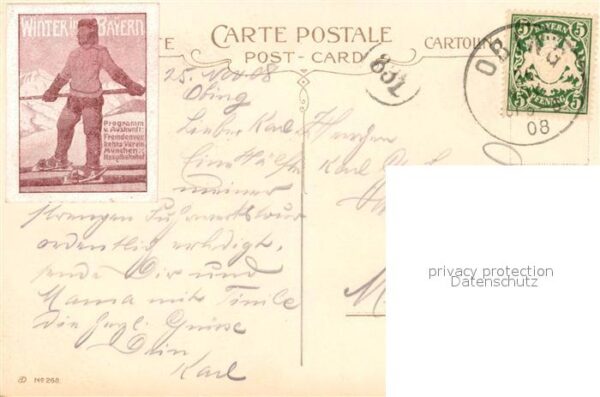 WINTER in BAYERN
Programm
u. Auskunft:
Fremdenver
kehrs Verein
München
Hauptbahnhof
CARTE POSTALE
TE
POST-CARD
CARTOLIN
(831)
5 BAYERN 5
5 PFENNIG 5
OB
08
25. Nov 08
Obing
Lieber Karl
Herrn
Eine Hälfte
Karl
meiner
strengen Fuhrwerkstour
ordentlich erledigt,
sende Dir und
Mama mit
die herzl. Grüsse
Dein
Karl
M
privacy protection
Datenschutz
No 268